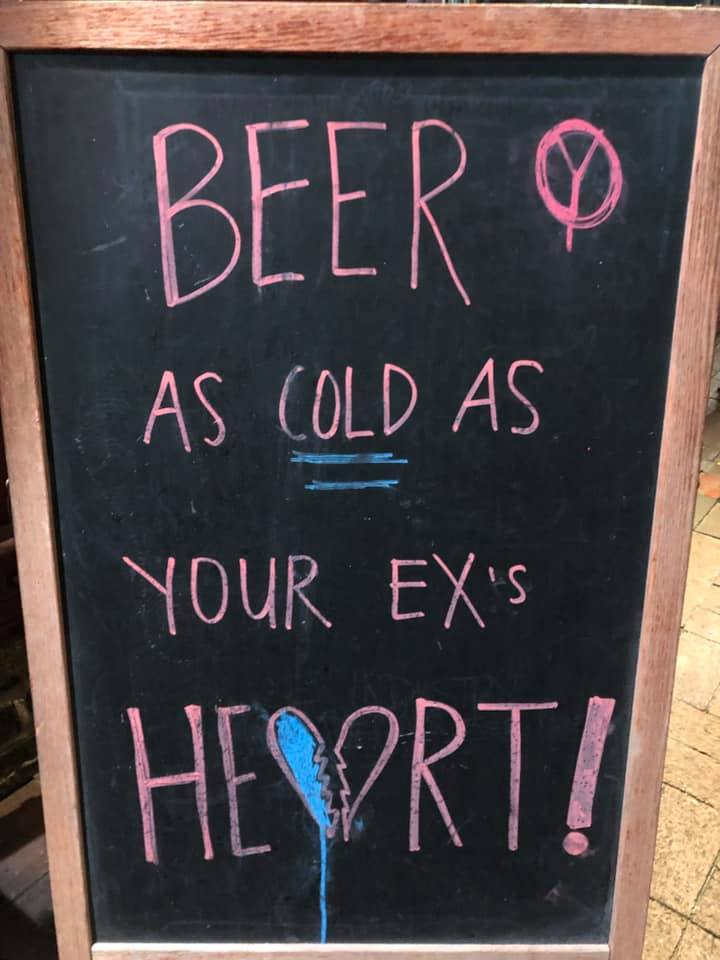 BEER
AS COLD AS
YOUR EX's
HE♥RT!